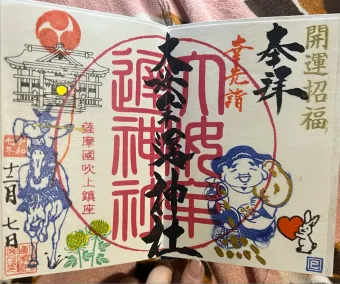 開運招福
奉拝
幸先詣
大汝牟遅神社
大汝牟遅神社
薩摩國吹上鎮座
令和七年
七日
巳